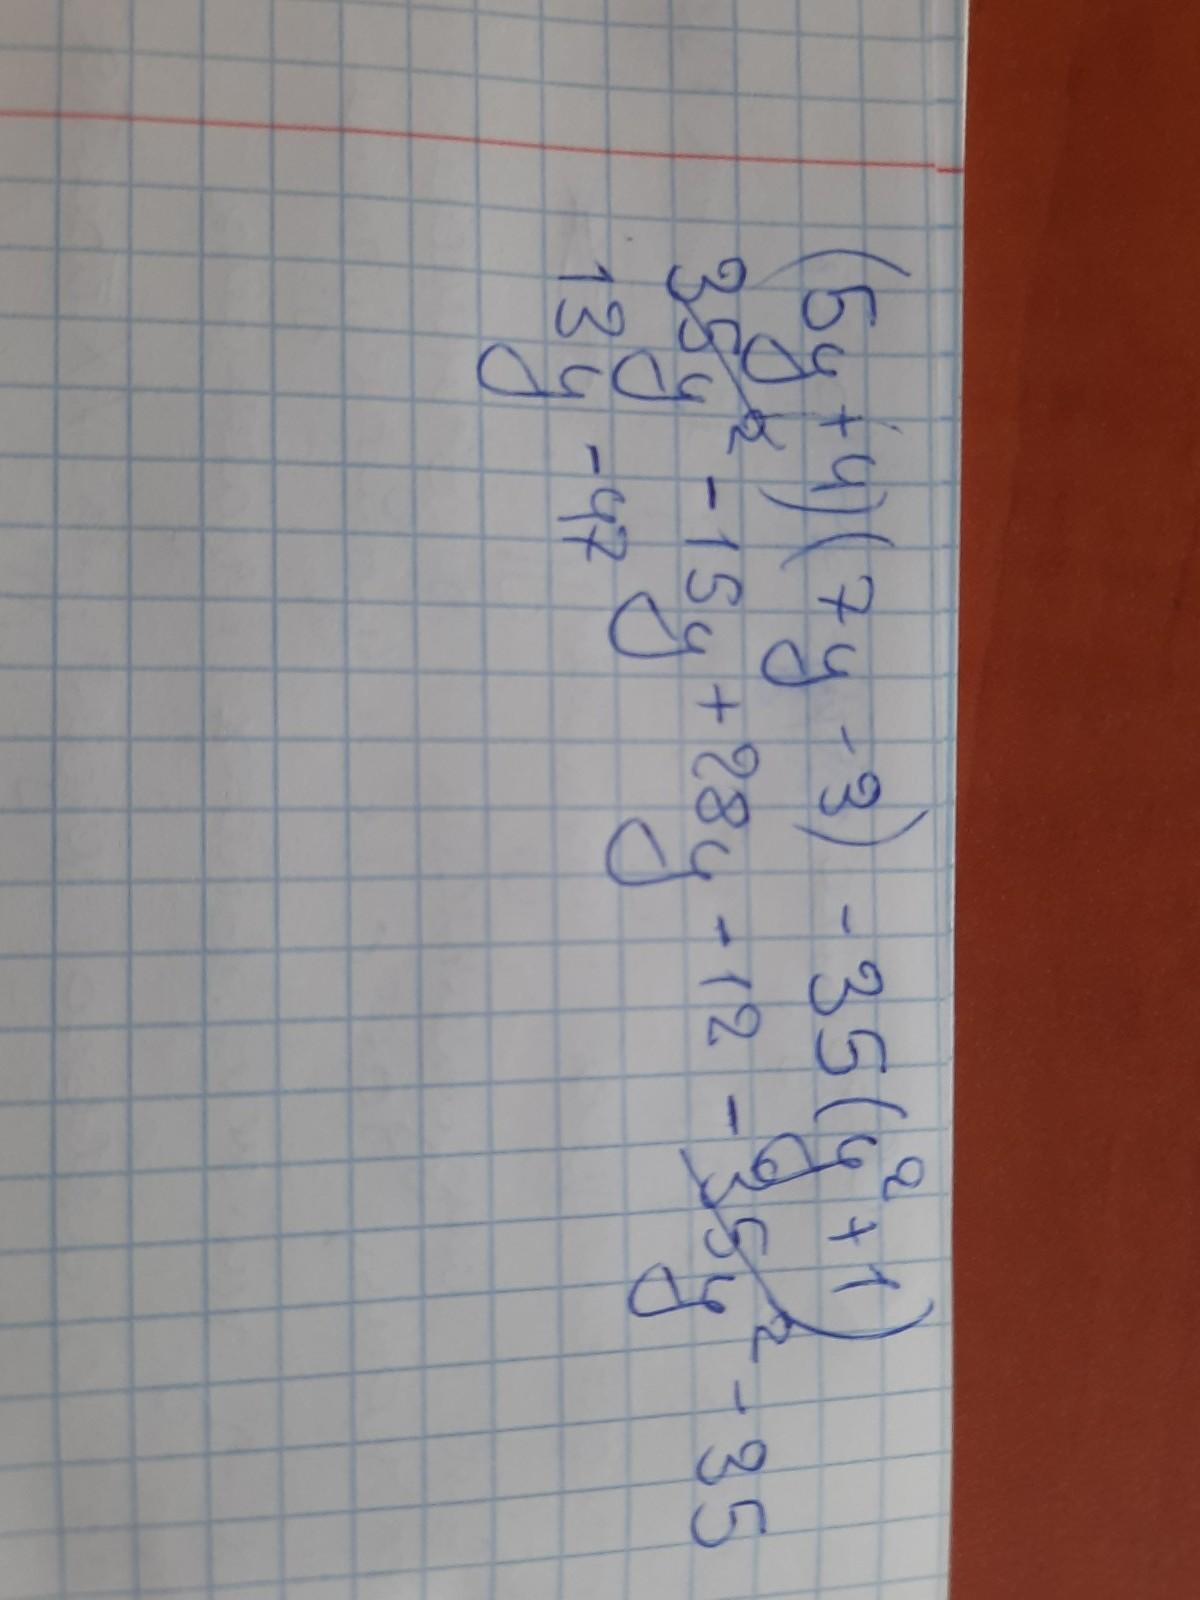 (5y+4)(7y-3)-35(y²+1)
35y²-15y+28y-12-35y²-35
13y-47